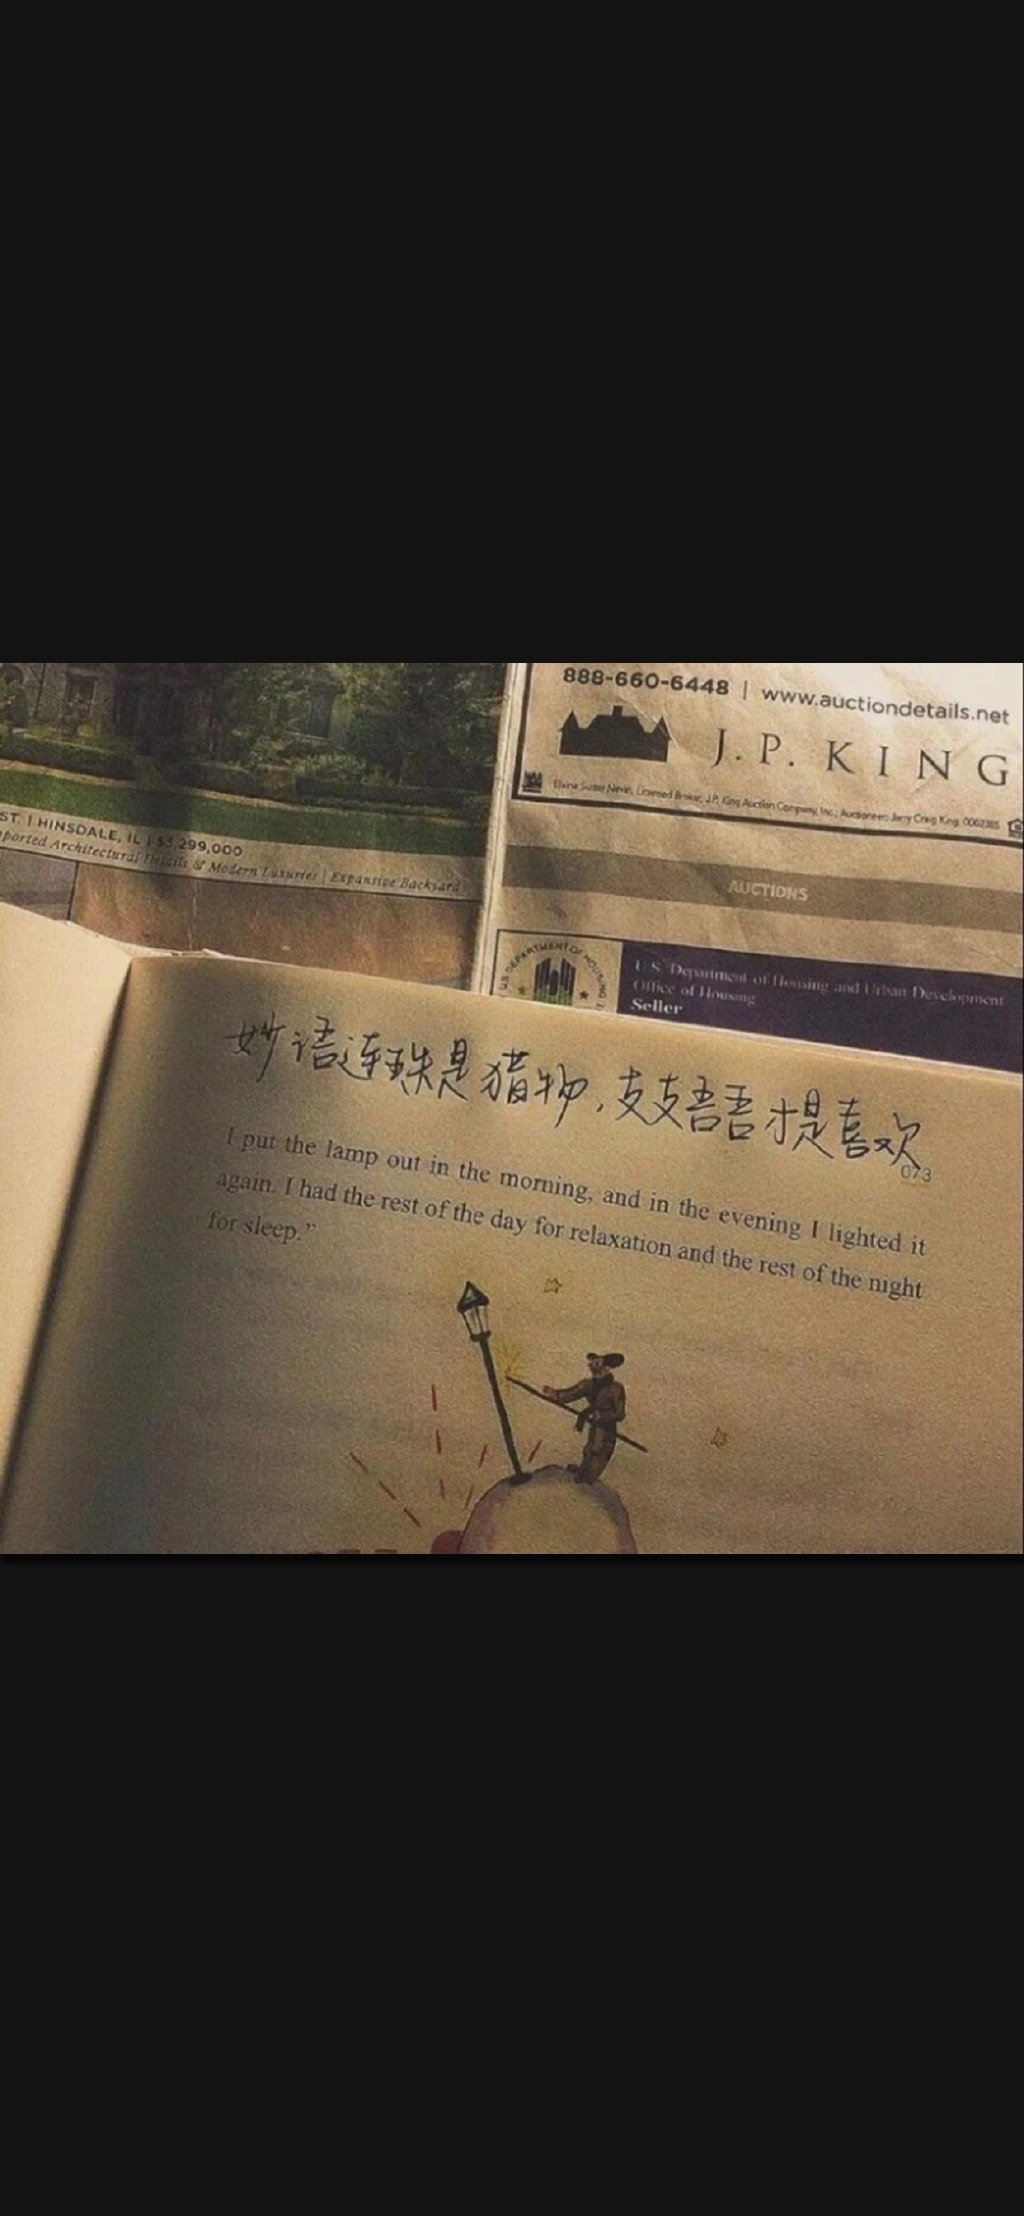 888-660-6448 | www.auctiondetails.net
J.P. KING
Licensed Broker, J.P. King Auction Company, Inc.; Auctioneer: Jerry Craig King,
ST. | HINSDALE, IL | $3,299,000
ported Architectural Details & Modern Luxuries | Expansive Backyard
AUCTIONS
US DEPARTMENT OF HOUSING
U.S. Department of Housing and Urban Development
Office of Housing
Seller
妙语连珠是猎物,支支吾吾才是喜欢
073
I put the lamp out in the morning, and in the evening I lighted it
again. I had the rest of the day for relaxation and the rest of the night
for sleep.”